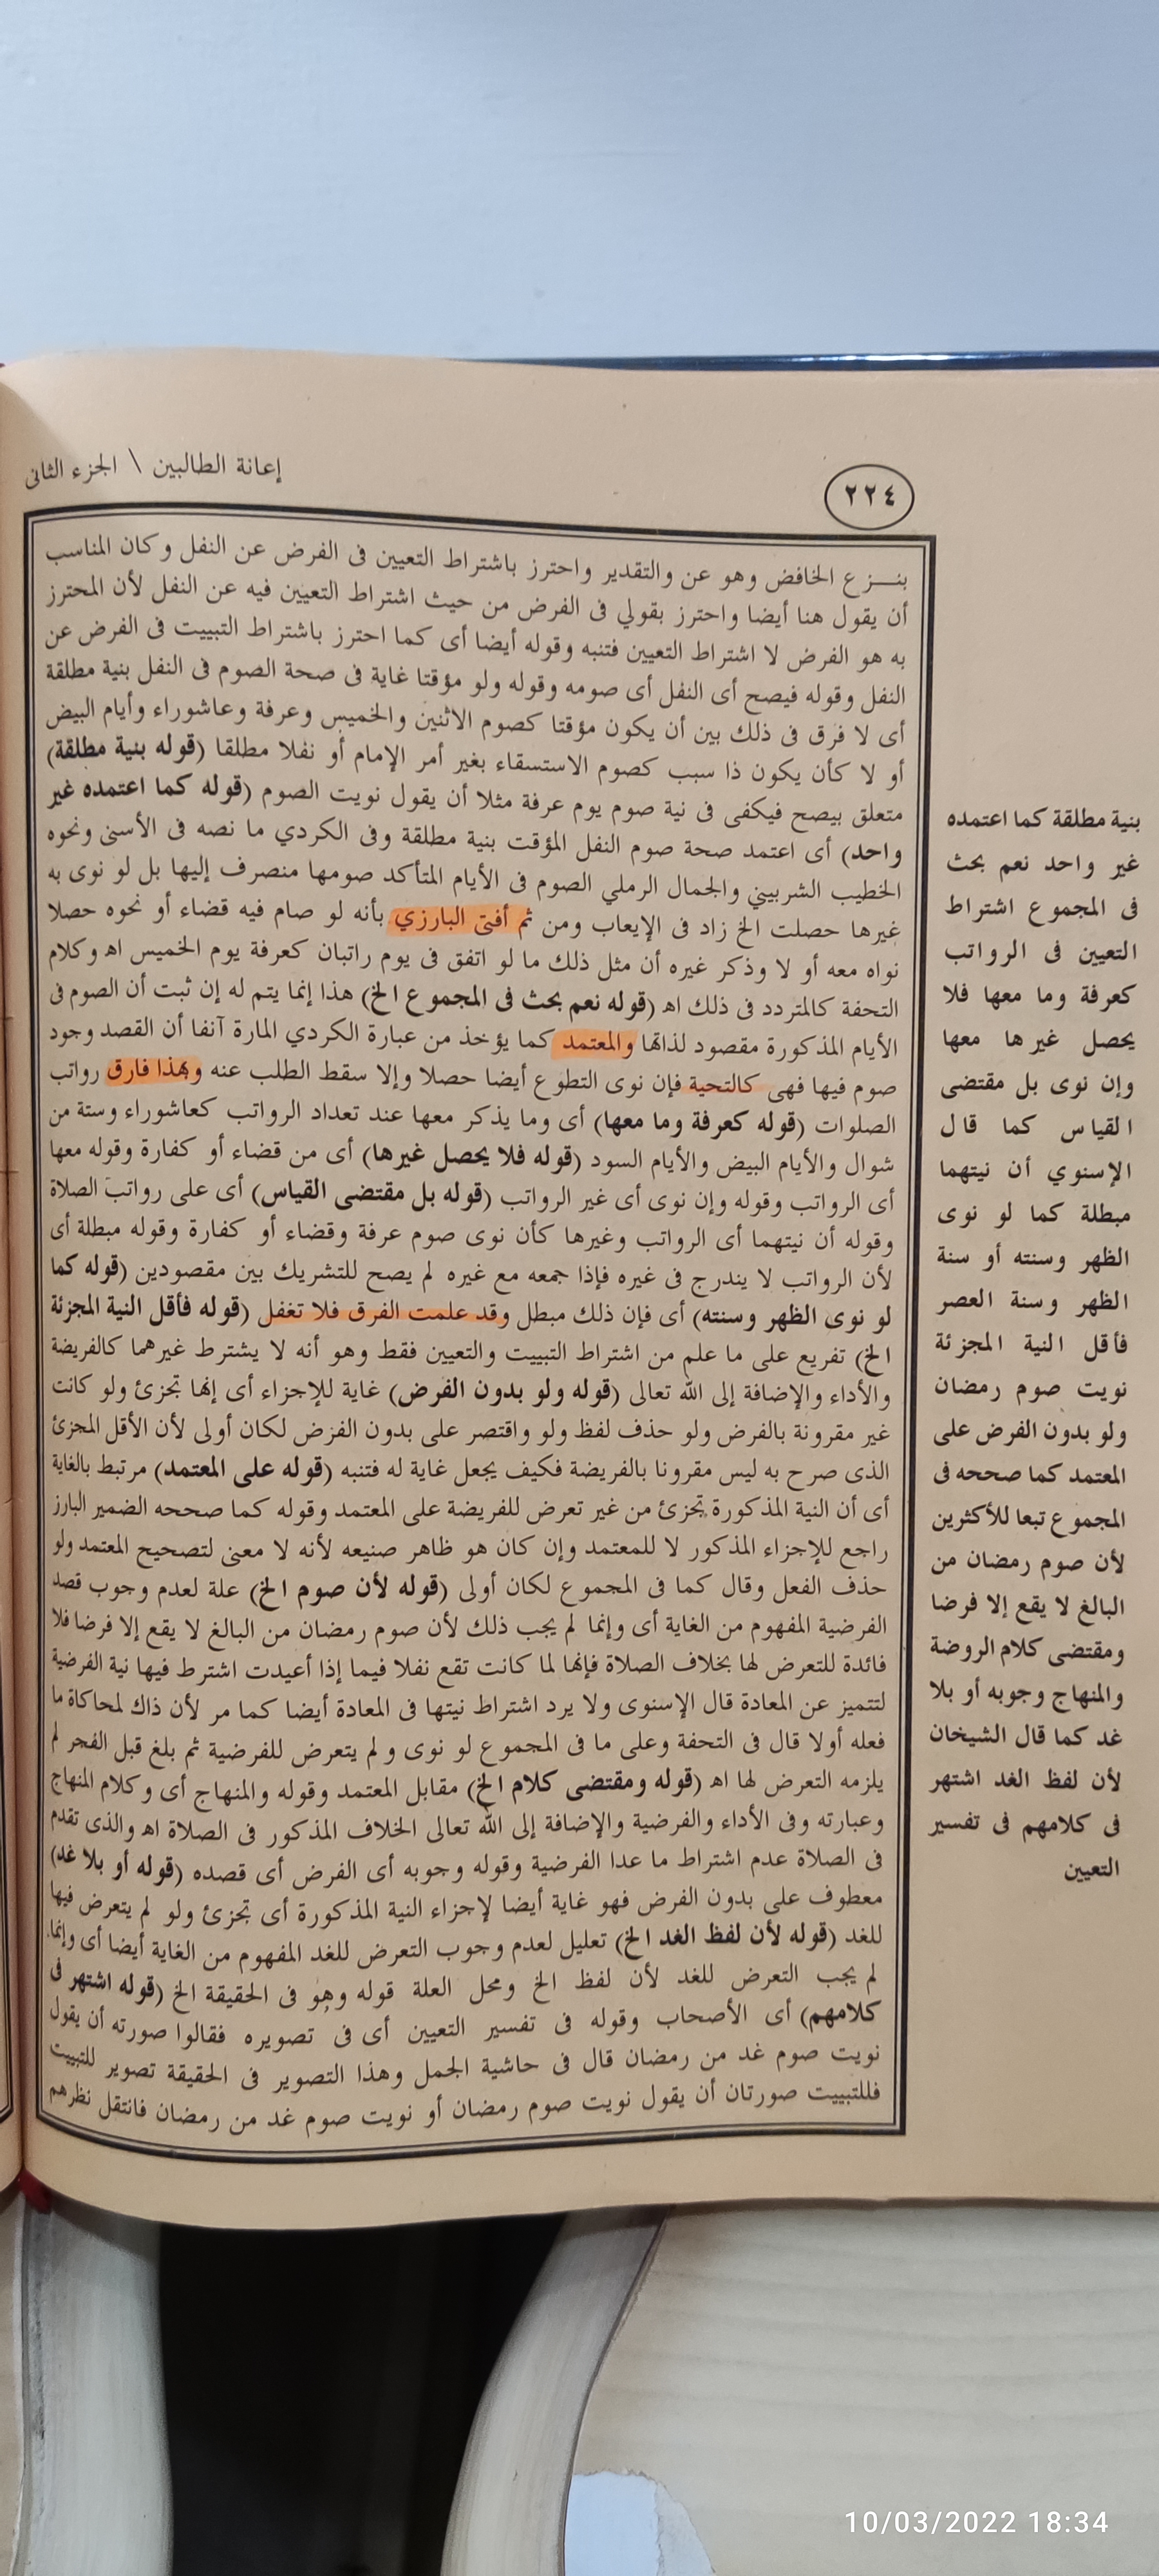 إعانة الطالبين \ الجزء الثانى
٢٢٤
بنـــزع الخافض وهو عن والتقدير واحترز باشتراط التعيين فى الفرض عن النفل وكان المناسب
أن يقول هنا أيضا واحترز بقولي فى الفرض من حيث اشتراط التعيين فيه عن النفل لأن المحترز
به هو الفرض لا اشتراط التعيين فتنبه وقوله أيضا أى كما احترز باشتراط التبييت فى الفرض عن
النفل وقوله فيصح أى النفل أى صومه وقوله ولو مؤقتا غاية فى صحة الصوم فى النفل بنية مطلقة
أى لا فرق فى ذلك بين أن يكون مؤقتا كصوم الاثنين والخميس وعرفة وعاشوراء وأيام البيض
أو لا كأن يكون ذا سبب كصوم الاستسقاء بغير أمر الإمام أو نفلا مطلقا (قوله بنية مطلقة)
متعلق بيصح فيكفى فى نية صوم يوم عرفة مثلا أن يقول نويت الصوم (قوله كما اعتمده غير
واحد) أى اعتمد صحة صوم النفل المؤقت بنية مطلقة وفى الكردي ما نصه فى الأسنى ونحوه
الخطيب الشربيني والجمال الرملي الصوم فى الأيام المتأكد صومها منصرف إليها بل لو نوى به
غيرها حصلت الخ زاد فى الإيعاب ومن ثم أفتى البارزي بأنه لو صام فيه قضاء أو نحوه حصلا
نواه معه أو لا وذكر غيره أن مثل ذلك ما لو اتفق فى يوم راتبان كعرفة يوم الخميس اهـ وكلام
التحفة كالمتردد فى ذلك اهـ (قوله نعم بحث فى المجموع الخ) هذا إنما يتم له إن ثبت أن الصوم فى
الأيام المذكورة مقصود لذاتها والمعتمد كما يؤخذ من عبارة الكردي المارة آنفا أن القصد وجود
صوم فيها فهى كالتحية فإن نوى التطوع أيضا حصلا وإلا سقط الطلب عنه وبهذا فارق رواتب
الصلوات (قوله كعرفة وما معها) أى وما يذكر معها عند تعداد الرواتب كعاشوراء وستة من
شوال والأيام البيض والأيام السود (قوله فلا يحصل غيرها) أى من قضاء أو كفارة وقوله معها
أى الرواتب وقوله وإن نوى أى غير الرواتب (قوله بل مقتضى القياس) أى على رواتب الصلاة
وقوله أن نيتهما أى الرواتب وغيرها كأن نوى صوم عرفة وقضاء أو كفارة وقوله مبطلة أى
لأن الرواتب لا يندرج فى غيره فإذا جمعه مع غيره لم يصح للتشريك بين مقصودين (قوله كما
لو نوى الظهر وسنته) أى فإن ذلك مبطل وقد علمت الفرق فلا تغفل (قوله فأقل النية المجزئة
الخ) تفريع على ما علم من اشتراط التبييت والتعيين فقط وهو أنه لا يشترط غيرهما كالفريضة
والأداء والإضافة إلى الله تعالى (قوله ولو بدون الفرض) غاية للإجزاء أى إنها تجزئ ولو كانت
غير مقرونة بالفرض ولو حذف لفظ ولو واقتصر على بدون الفرض لكان أولى لأن الأقل المجزئ
الذى صرح به ليس مقرونا بالفريضة فكيف يجعل غاية له فتنبه (قوله على المعتمد) مرتبط بالغاية
أى أن النية المذكورة تجزئ من غير تعرض للفريضة على المعتمد وقوله كما صححه الضمير البارز
راجع للإجزاء المذكور لا للمعتمد وإن كان هو ظاهر صنيعه لأنه لا معنى لتصحيح المعتمد ولو
حذف الفعل وقال كما فى المجموع لكان أولى (قوله لأن صوم الخ) علة لعدم وجوب قصد
الفرضية المفهوم من الغاية أى وإنما لم يجب ذلك لأن صوم رمضان من البالغ لا يقع إلا فرضا فلا
فائدة للتعرض لها بخلاف الصلاة فإنها لما كانت تقع نفلا فيما إذا أعيدت اشترط فيها نية الفرضية
لتتميز عن المعادة قال الإسنوى ولا يرد اشتراط نيتها فى المعادة أيضا كما مر لأن ذاك لمحاكاة ما
فعله أولا قال فى التحفة وعلى ما فى المجموع لو نوى ولم يتعرض للفرضية ثم بلغ قبل الفجر لم
يلزمه التعرض لها اهـ (قوله ومقتضى كلام الخ) مقابل المعتمد وقوله والمنهاج أى وكلام المنهاج
وعبارته وفى الأداء والفرضية والإضافة إلى الله تعالى الخلاف المذكور فى الصلاة اهـ والذى تقدم
فى الصلاة عدم اشتراط ما عدا الفرضية وقوله وجوبه أى الفرض أى قصده (قوله أو بلا غد)
معطوف على بدون الفرض فهو غاية أيضا لإجزاء النية المذكورة أى تجزئ ولو لم يتعرض فيها
للغد (قوله لأن لفظ الغد الخ) تعليل لعدم وجوب التعرض للغد المفهوم من الغاية أيضا أى وإنما
لم يجب التعرض للغد لأن لفظ الخ ومحل العلة قوله وهو فى الحقيقة الخ (قوله اشتهر فى
كلامهم) أى الأصحاب وقوله فى تفسير التعيين أى فى تصويره فقالوا صورته أن يقول
نويت صوم غد من رمضان قال فى حاشية الجمل وهذا التصوير فى الحقيقة تصوير للتبييت
فللتبييت صورتان أن يقول نويت صوم رمضان أو نويت صوم غد من رمضان فانتقل نظرهم
بنية مطلقة كما اعتمده
غير واحد نعم بحث
فى المجموع اشتراط
التعيين فى الرواتب
كعرفة وما معها فلا
يحصل غيرها معها
وإن نوى بل مقتضى
القياس كما قال
الإسنوي أن نيتهما
مبطلة كما لو نوى
الظهر وسنته أو سنة
الظهر وسنة العصر
فأقل النية المجزئة
نويت صوم رمضان
ولو بدون الفرض على
المعتمد كما صححه فى
المجموع تبعا للأكثرين
لأن صوم رمضان من
البالغ لا يقع إلا فرضا
ومقتضى كلام الروضة
والمنهاج وجوبه أو بلا
غد كما قال الشيخان
لأن لفظ الغد اشتهر
فى كلامهم فى تفسير
التعيين
10/03/2022 18:34